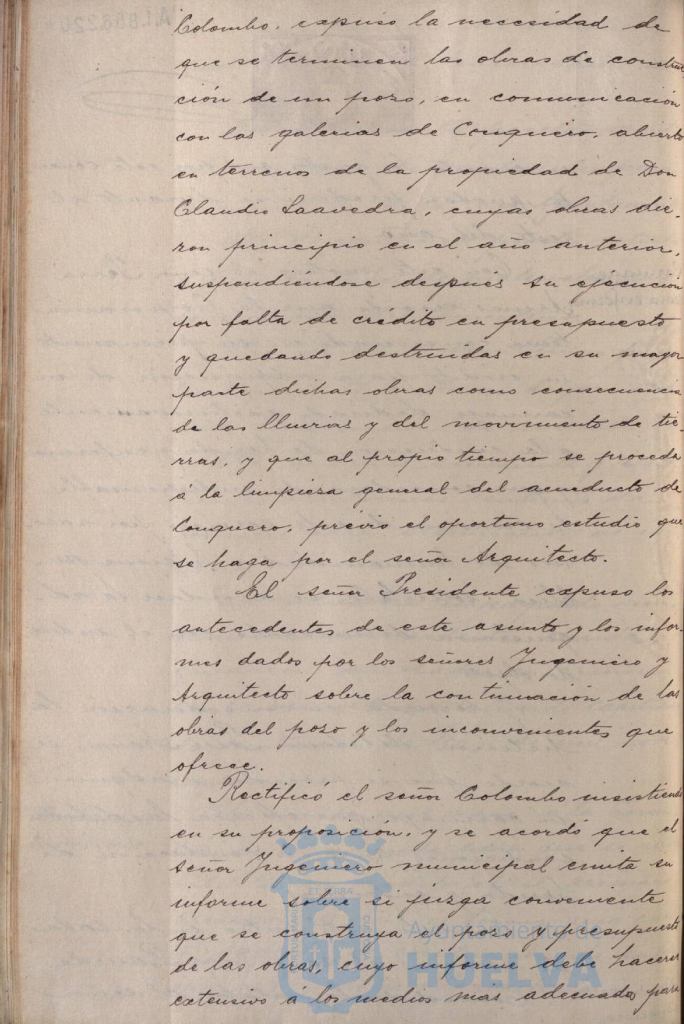 Colombo, expuso la necesidad de
que se terminen las obras de construc-
ción de un pozo, en comunicación
con las galerias de Conquero, abierto
en terrenos de la propiedad de Don
Claudio Saavedra, cuyas obras die-
ron principio en el año anterior,
suspendiéndose después su ejecución
por falta de crédito en presupuesto
y quedando destruidas en su mayor
parte dichas obras como consecuencia
de las lluvias y del movimiento de tie-
rras, y que al propio tiempo se proceda
á la limpieza general del acueducto de
Conquero, previo el oportuno estudio que
se haga por el señor Arquitecto.
El señor Presidente expuso los
antecedentes de este asunto y los infor-
mes dados por los señores Ingeniero y
Arquitecto sobre la continuación de las
obras del pozo y los inconvenientes que
ofrece.
Rectificó el señor Colombo insistiendo
en su proposición, y se acordó que el
señor Ingeniero municipal emita su
informe sobre si juzga conveniente
que se construya el pozo y presupuesto
de las obras, cuyo informe debe hacerse
extensivo á los medios mas adecuados para
Ayuntamiento de
HUELVA